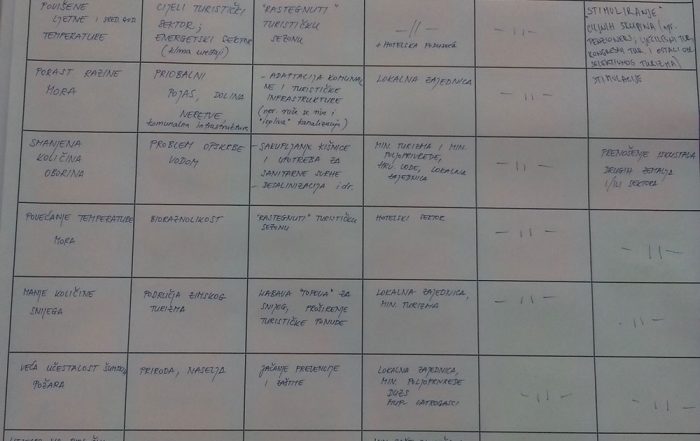 POVIŠENE
LJETNE I SRED. GOD.
TEMPERATURE
CIJELI TURISTIČKI
SEKTOR;
ENERGETSKI SEKTOR
(klima uređaji)
"RASTEGNUTI"
TURISTIČKU
SEZONU
- 11 -
+ HOTELSKA
- 11 -
"STIMULIRANJE"
CILJNIH SKUPINA (npr.
KONGRESNI TUR. I OSTALI OBL.
SELEKTIVNOG TURIZMA)
PORAST RAZINE
MORA
PRIOBALNI
POJAS, DOLINA
NERETVE,
komunalna infrastruktura
- ADAPTACIJA KOMUNAL
NE I TURISTIČKE
INFRASTRUKTURE
(npr. ruše se rive i
kanalizacija)
LOKALNA ZAJEDNICA
- 11 -
STIMULACIJE
SMANJENA
KOLIČINA
OBORINA
PROBLEM OPSKRBE
VODOM
- SAKUPLJANJE KIŠNICE
I UPOTREBA ZA
SANITARNE SVRHE
- DESALINIZACIJA i dr.
MIN. TURIZMA I MIN.
POLJOPRIVREDE,
HRV. VODE, LOKALNA
ZAJEDNICA
- 11 -
PRENOŠENJE ISKUSTAVA
DRUGIH ZEMALJA
I/ILI SEKTORA
POVEĆANJE TEMPERATURE
MORA
BIORAZNOLIKOST
"RASTEGNUTI" TURISTIČKU
SEZONU
HOTELSKI SEKTOR
- 11 -
- 11 -
MANJE KOLIČINE
SNIJEGA
PODRUČJA ZIMSKOG
TURIZMA
NABAVA "TOPOVA" ZA
SNIJEG, PROŠIRENJE
TURISTIČKE PONUDE
LOKALNA ZAJEDNICA,
MIN. TURIZMA
- 11 -
- 11 -
VEĆA UČESTALOST ŠUMSKIH
POŽARA
PRIRODA, NASELJA
JAČANJE PREVENCIJE
I ZAŠTITE
LOKALNA ZAJEDNICA,
MIN. POLJOPRIVREDE
DUZS
VATROGASCI
- 11 -
- 11 -